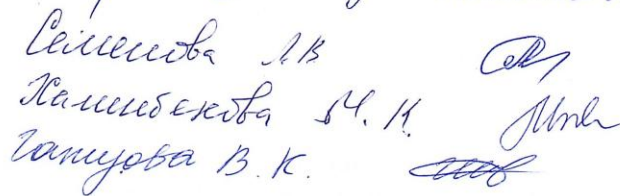 Семенова Л.В
Халинбекова М.К.
Гатцова В.К.